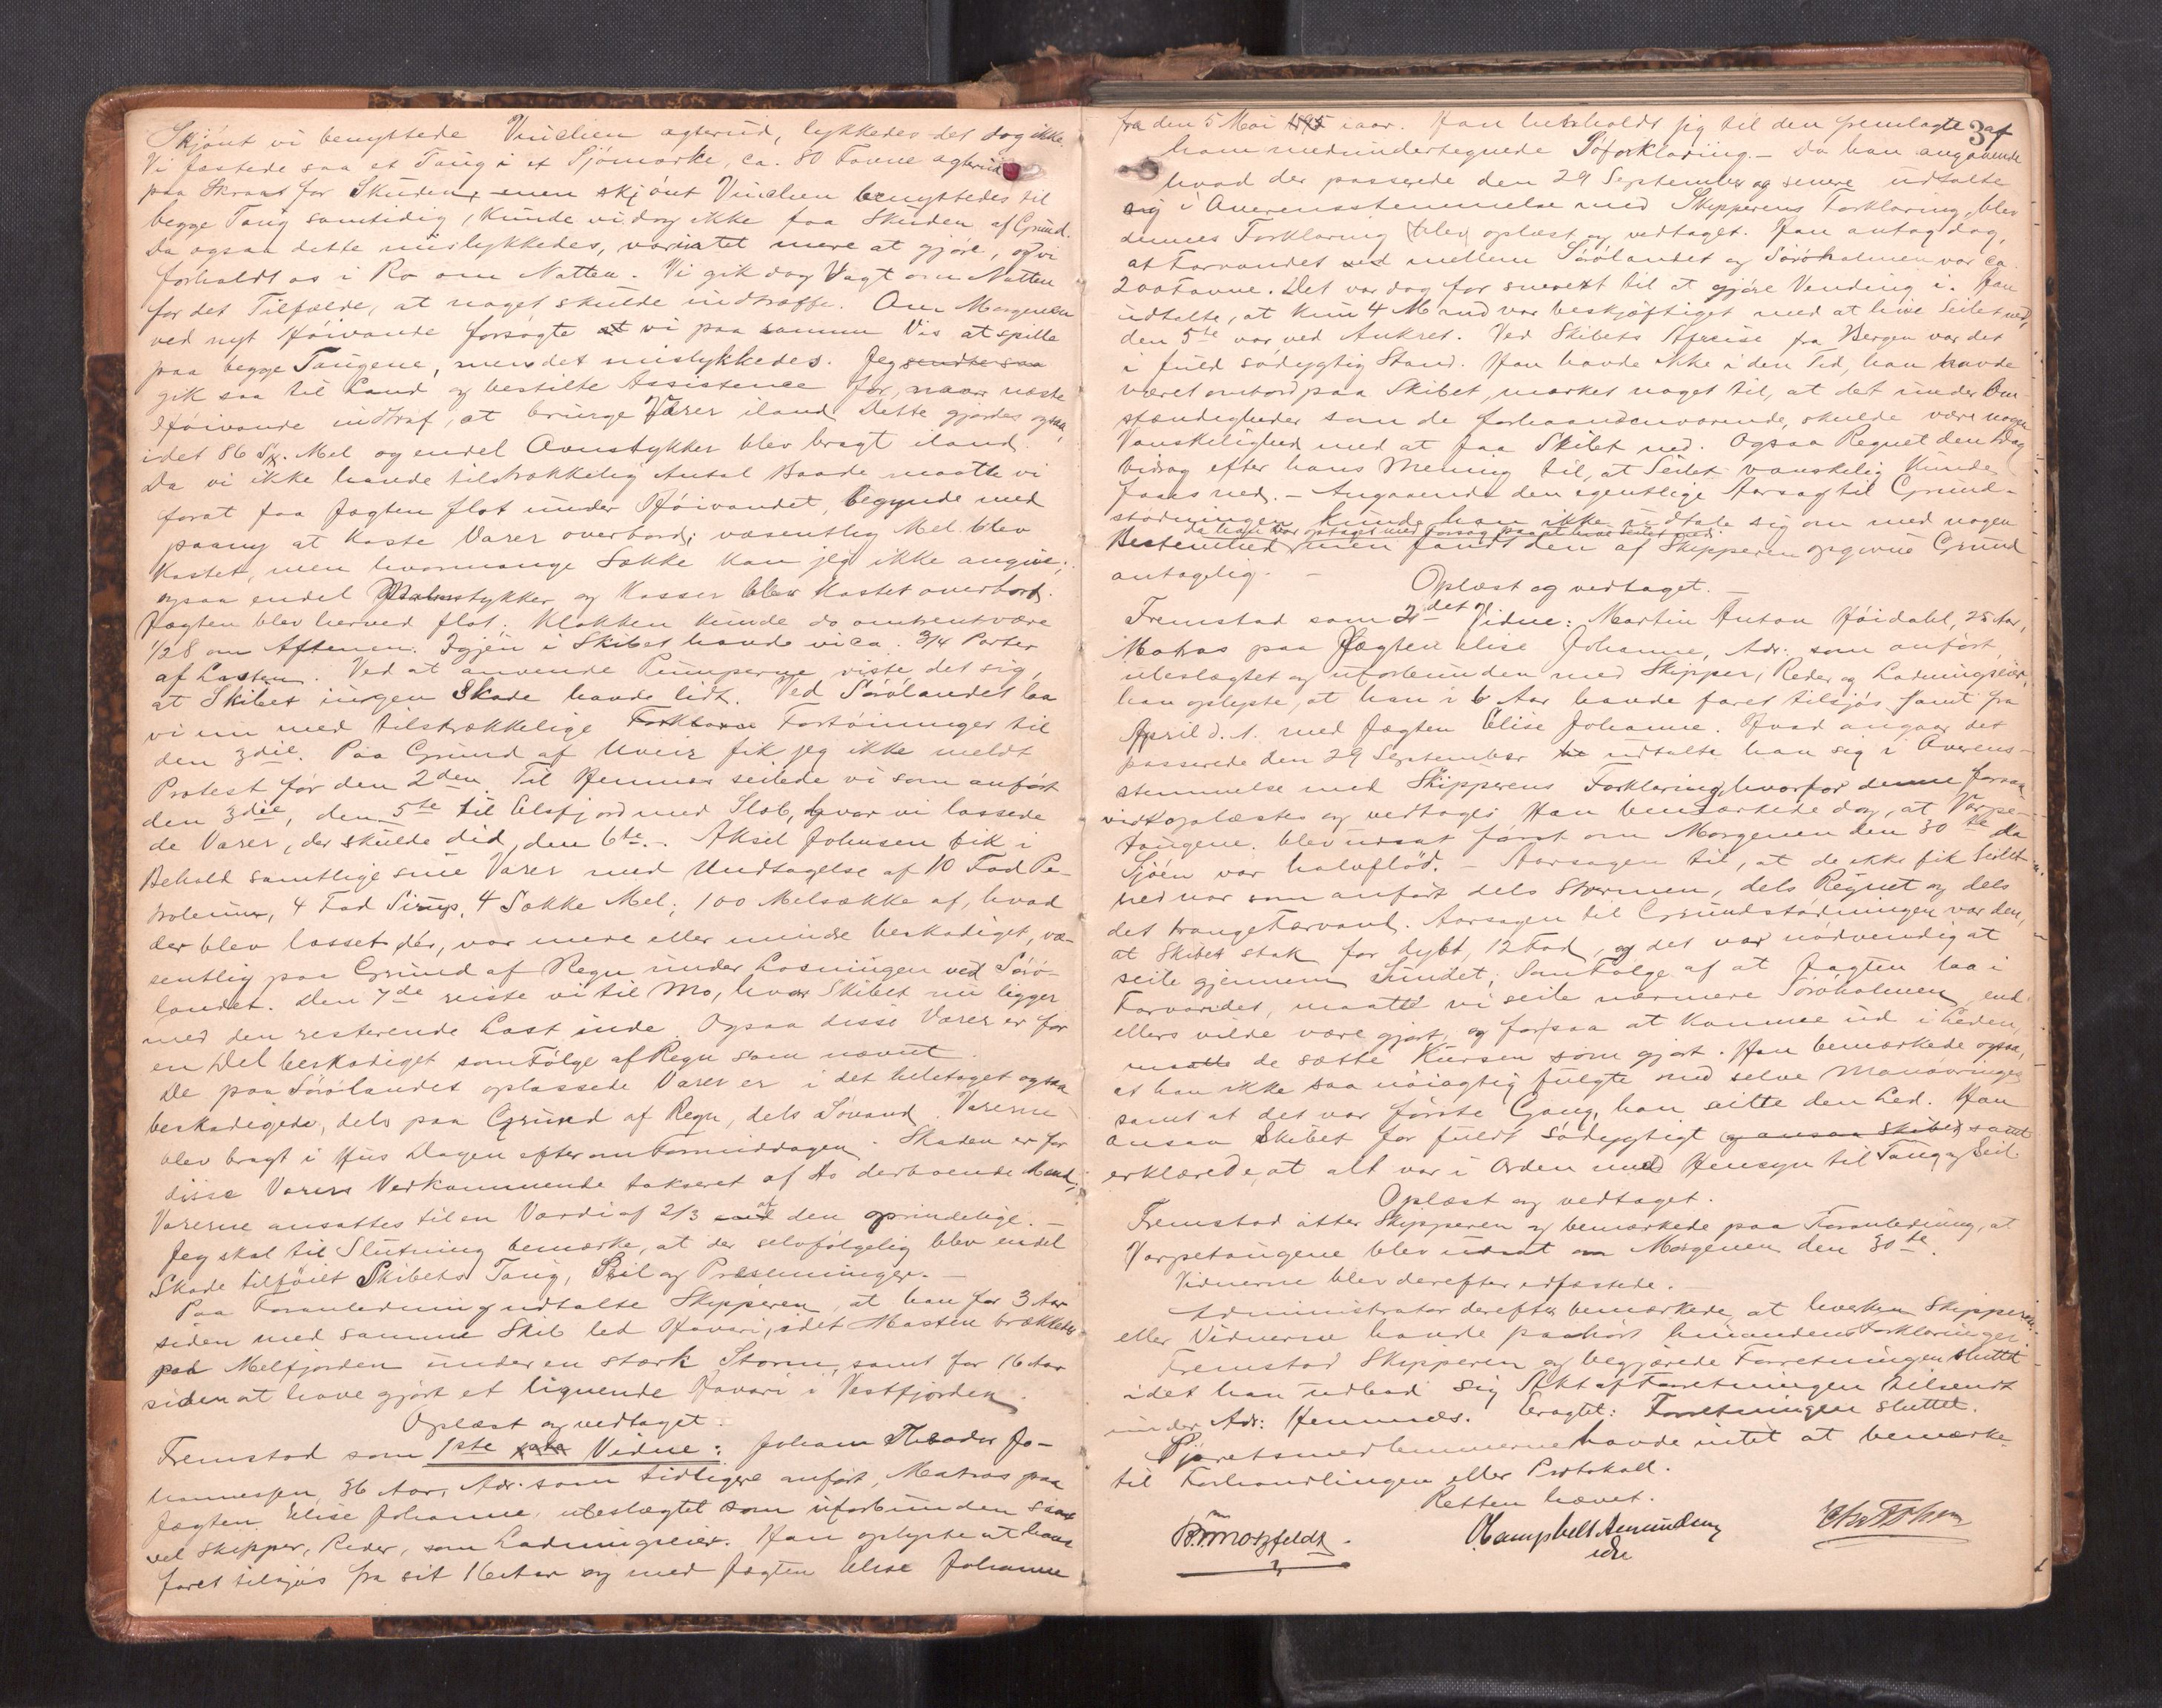 Skjönt vi benyttede Vinchen agterud, lykkedes det dog ikke.
Vi fæstede saa et Toug i et Sjömærke, ca. 80 Favne agterud
paa Skraas for Skuden, men skjönt Vinchen benyttedes til
begge Toug samtidig, kunde vi dog ikke faa Skuden af Grund.
Da ogsaa dette mislykkedes, var intet mere at gjöre, og vi
forholdt os i Ro om Natten. Vi gik dog Vagt om Natten
for det Tilfælde, at noget skulde indtræffe. Om Morgenen
ved nyt Höivande forsögte vi paa samme Vis at spille
paa begge Tougene, men det mislykkedes. Jeg sendte saa
gik saa til Land og bestilte Assistence for, naar næste
Höivande indtraf, at bringe Varer iland. Dette gjordes ogsaa,
idet 86 Sk. Mel og endel Ovnstykker blev bragt iland.
Da vi ikke havde tilstrækkelig Antal Baade maatte vi
forat faa Jagten flot under Höivandet, begynde med
paany at kaste Varer overbord; væsentlig Mel blev
kastet, men hvormange Sække kan jeg ikke angive;
ogsaa endel stykker og Kasser blev kastet overbord.
Jagten blev herved flot. Klokken kunde da omtrent være
1/2 8 om Aftenen. Igjen i Skibet havde vi ca. 3/4 Parter
af Lasten. Ved at anvende Pumperne viste det sig,
at Skibet ingen Skade havde lidt. Ved Sörölandet laa
vi nu med tilstrækkelige Fortöininger til
den 3die. Paa Grund af Uveir fik jeg ikke meldt
Protest för den 2den. Til Hemnes seilede vi som anfört
den 3die, den 5te til Elsfjord med Slæb, hvor vi lossede
de Varer, der skulde did, den 6te. Aksel Johnsen fik i
Behold samtlige sine Varer med Undtagelse af 10 Fad Pe-
troleum, 4 Fad Sirup, 4 Sække Mel; 100 Melsække af, hvad
der blev losset dér, var mere eller mindre beskadiget, væ-
sentlig paa Grund af Regn under Losningen ved Sörö-
landet. Den 7de reiste vi til Mo, hvor Skibet nu ligger
med den resterende Last inde. Ogsaa disse Varer er for
en Del beskadiget som Fölge af Regn som nævnt.
De paa Sörölandet oplossede Varer er i det heletaget ogsaa
beskadigede, dels paa Grund af Regn, dels Sövand. Varerne
blev bragt i Hus Dagen efter om Formiddagen. Skaden er for
disse Varers Vedkommende takseret af to derboende Mænd;
Varerne ansættes til en Værdi af 2/3 af den oprindelige.
Jeg skal til Slutning bemærke, at der selvfölgelig blev endel
Skade tilföiet Skibets Toug, Seil og Presenninger.
Paa Foranledning udtalte Skipperen, at han for 3 Aar
siden med samme Skib led Havari, idet Masten brækkede
paa Melfjorden under en stærk Storm, samt for 16 Aar
siden at have gjört et lignende Havari i Vestfjorden.
Oplæst og vedtaget.
Fremstod som 1ste Vidne: Johan Theodor Jo-
hannessen, 36 Aar, Adr. som tidligere anfört, Matros paa
Jagten Elise Johanne, ubeslægtet som uforbunden saavel
vel Skipper, Reder, som Ladningseier. Han oplyste at have
faret tilsjös fra sit 16de Aar og med Jagten Elise Johanne
3
fra den 5 Mai 1895 iaar. Han henholdt sig til den fremlagte af
ham medundertegnede Söforklaring. – Da han angaaende
hvad der passerede den 29 September og senere udtalte
sig i Overensstemmelse med Skipperens Forklaring, blev
dennes Forklaring (blev) oplæst og vedtaget. Han antog dog,
at Farvandet mellem Sörölandet og Söröholmen var ca
200 Favne. Det var dog for snevert til at gjöre Vending i. Han
udtalte, at kun 4 Mand var beskjæftiget med at hive Seilet ned,
den 5te var ved Ankret. Ved Skibets Afreise fra Bergen var det
i fuld södygtig Stand. Han havde ikke i den Tid, han havde
været ombord paa Skibet, mærket noget til, at det under Om-
stændigheder som de forhaandenværende, skulde være nogen
Vanskelighed med at faa Skibet ned. Ogsaa Regnet den Dag
bidrog efter hans Mening til, at Seilet vanskelig kunde
faaes ned. – Angaaende den egentlige Aarsag til Grund-
stödningen kunde han ikke udtale sig om med nogen
da han var optaget med Forsög paa at hive Seilet ned
Bestemthed men fandt den af Skipperen opgivne Grund
antagelig. –
Oplæst og vedtaget. –
Fremstod som 2det Vidne: Martin Anton Höidahl, 25 Aar,
Matros paa Jagten Elise Johanne, Adr. som anfört,
ubeslægtet og uforbunden med Skipper, Reder og Ladningseier,
han oplyste, at han i 6 Aar havde faret tilsjös samt fra
April d. A. med Jagten Elise Johanne. Hvad angaar det
passerede den 29 September udtalte han sig i Overens-
stemmelse med Skipperens Forklaring, hvorfor denne forsaa-
vidt oplæstes og vedtoges. Han bemærkede dog, at Varpe-
tougene blev udsat först om Morgenen den 30te da
Sjöen var halvflöd. – Aarsagen til, at de ikke fik Seilet
ned var som anfört dels Stormen, dels Regnet og dels
det trange Farvand. Aarsagen til Grundstödningen var den,
at Skibet stak for dybt, 12 Fod, og det var nödvendig at
seile gjennem Sundet. Som Fölge af at Jagten laa i
Farvandet, maatte vi seile nærmere Söröholmen end
ellers vilde være gjort, og forsaa at komme ud i Leden,
maatte de sætte Kursen som gjort. Han bemærkede ogsaa,
at han ikke saa nöiagtig fulgte med selve Manövringen
samt at det var förste Gang, han seilte den Led. Han
ansaa Skibet for fuldt södygtigt og ansaa Skibet samt
erklærede, at alt var i Orden med Hensyn til Toug og Seil.
Oplæst og vedtaget.
Fremstod atter Skipperen og bemærkede paa Foranledning, at
Varpetougene blev udsat om Morgenen den 30te.
Vidnerne blev derefter edfæstede. –
Administrator derefter bemærkede, at hverken Skipperen
eller Vidnerne havde paahört hinandens Forklaringer.
Fremstod Skipperen og begjærede Forretningen sluttet
idet han udbad sig Akt af Forretningen tilsendt
under Adr: Hemnæs. Eragtet: Forretningen sluttet.
Sjöretsmedlemmerne havde intet at bemærke
til Forhandlingen eller Protokoll.
Retten hævet.
Motzfeldt
O Campbell Amundsen
edsv